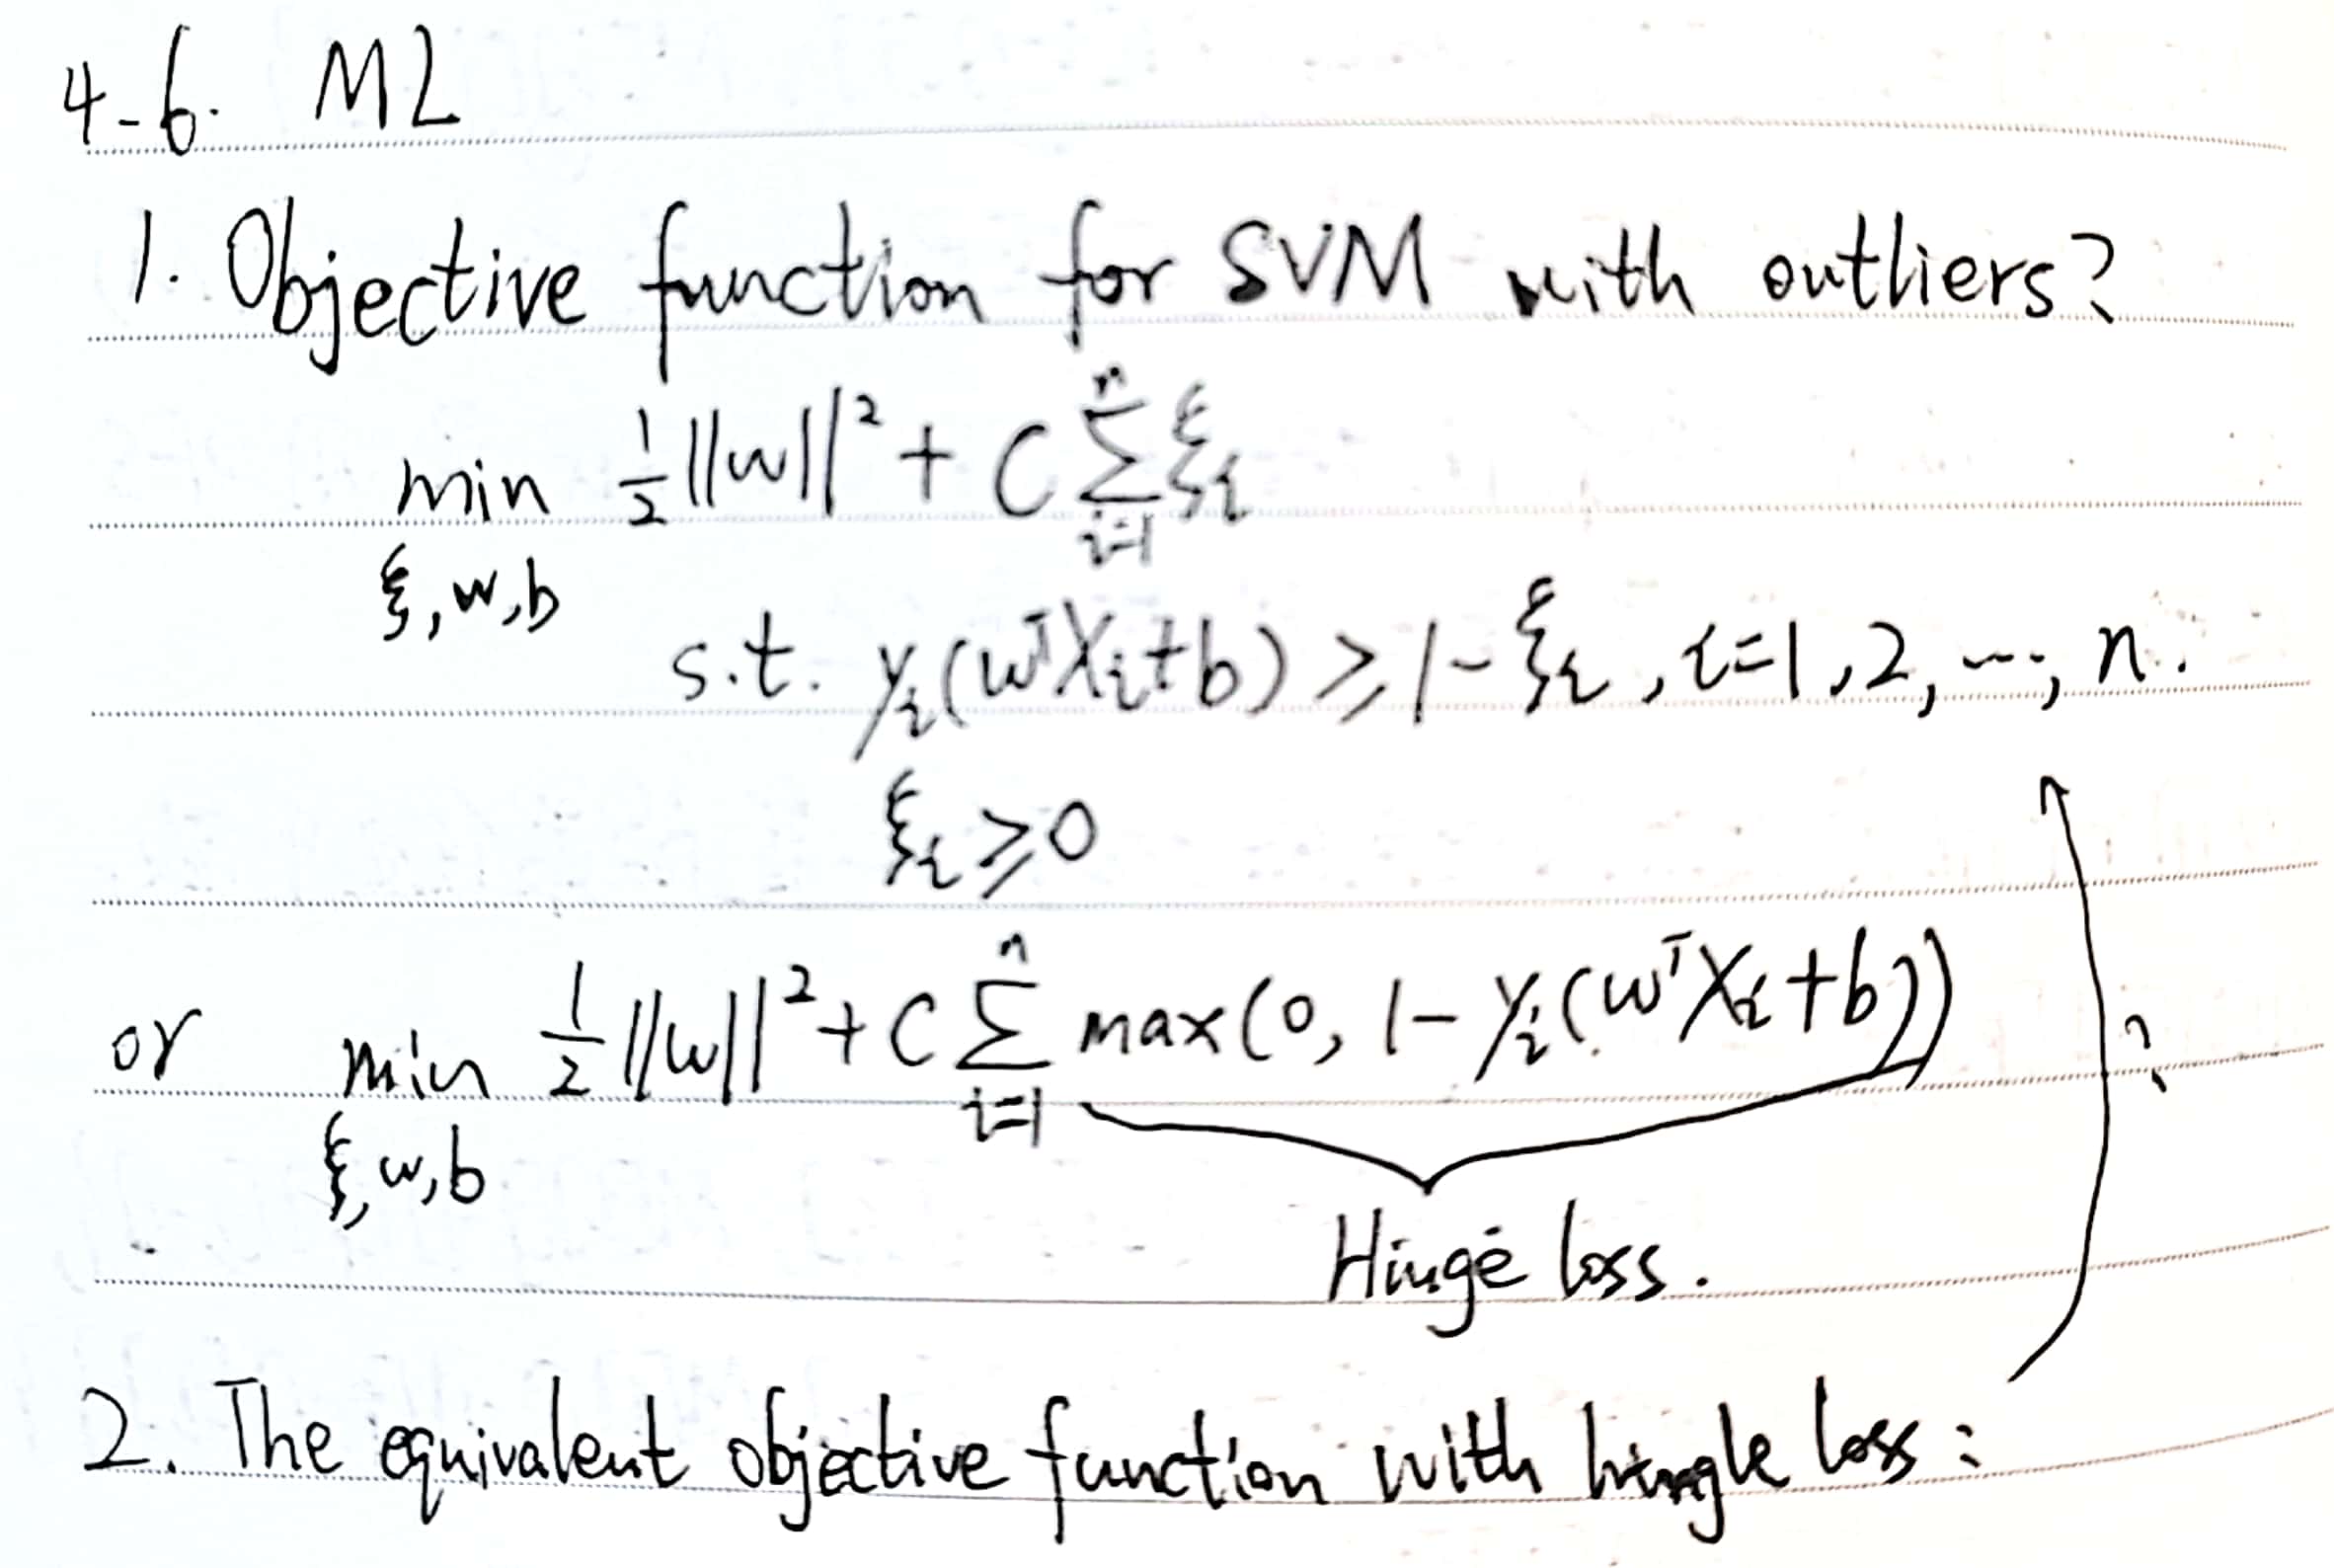 4-6. ML
1. Objective function for SVM with outliers?
min ½||w||² + C Σⁿᵢ₌₁ ξᵢ
ξ, w, b
s.t. yᵢ(wᵀXᵢ+b) ≥ 1-ξᵢ, i=1,2,…, n.
ξᵢ ≥ 0
or min ½||w||² + C Σⁿᵢ₌₁ max(0, 1-yᵢ(wᵀXᵢ+b))
ξ, w, b
?
Hinge loss.
2. The equivalent objective function with hingle loss: